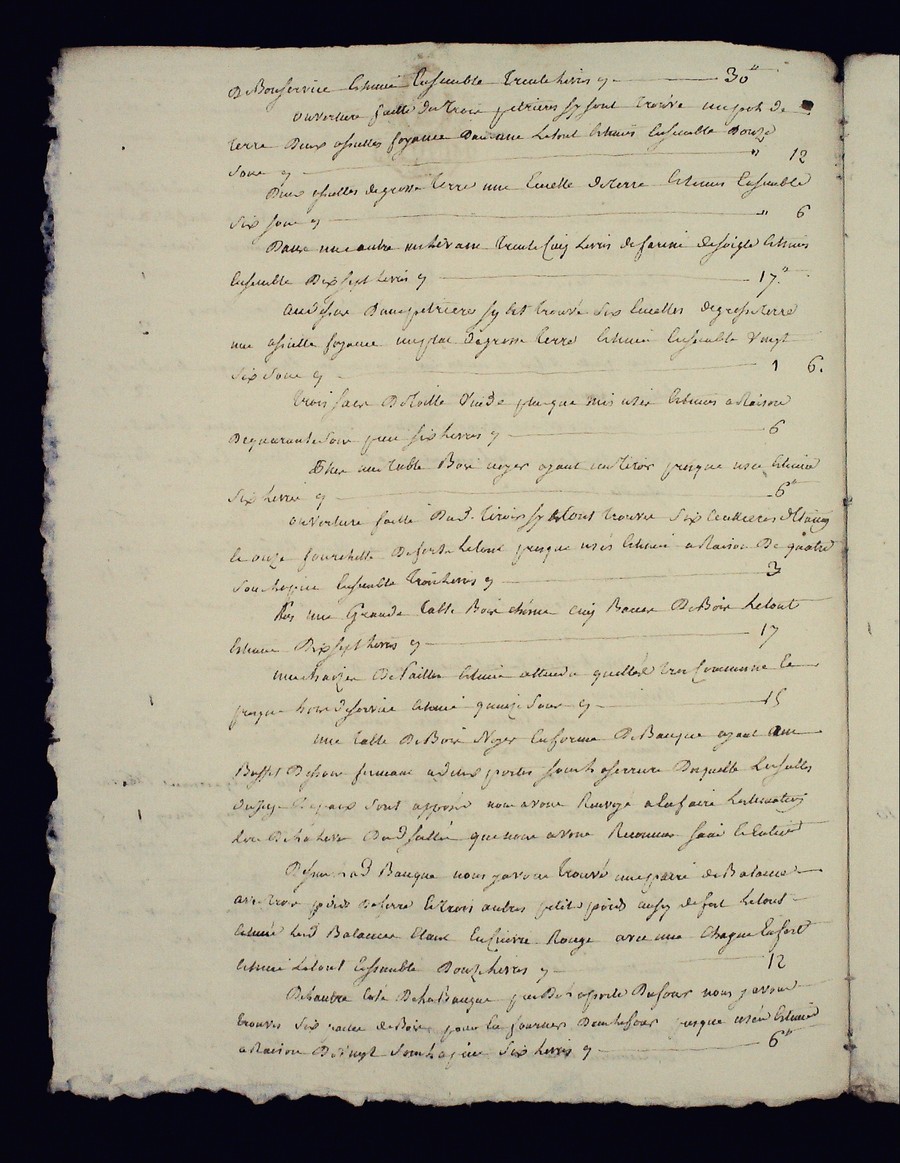 De Bon service Estimé Ensemble trente Livres cy 30"
ouverture faitte des trois petrieres sy sont trouvé un pot de
terre Deux assiettes fayance Le tout Estimés Ensemble Douze
Sous cy " 12
Deux assiettes de grosse terre une Ecuelle de terre Estimés Ensemble
Six sous cy " 6
Dans une autre trente Cinq Livres de farine de soigle Estimés
Ensemble Dix sept Livres cy 17"
petrieres sy Est trouvé Six Ecuelles de grosse terre
une assiette fayance un plat de grosse terre Estimés Ensemble Vingt
Six Sous cy 1 6.
trois sacs De toille presque mis usés Estimés a Raison
De quarante Sous piece six Livres cy 6
une table Bois noyer ayant un tiroir presque usée Estimée
Six Livres cy 6"
ouverture faitte Dud. tiroir sy sont trouvés Six Cuilleres d'Etaing
et onze fourchette De fert Le tout presque usés Estimés a Raison De quatre
Sous la piece Ensemble trois Livres cy 3
Plus une Grande table Bois chêne cinq Bancs De Bois Le tout
Estimés Dix sept Livres cy 17
De Paille Estimée attendu quelles très Commune Et
presque hors de service Estimé quinze Sous cy 15
une table De Bois Noyer En forme De Banque ayant un
Buffet Dessous fermant a deux portes sous la serrure Duquelle Les scellés
sont apposés nous avons Renvoyé a En faire L'estimation
Lors De la Levée Dud scellé que nous avons Reconnu sain Et Entier
Dessus lad Banque nous y avons trouvé une paire de Balance
avec trois poids De terre Et trois autres petits poids aussy de fert Le tout
Estimé Lesd Balances Etant En Cuivre Rouge avec une Chaque En fert
Estimé Le tout Ensemble Douze Livres cy 12
De L'autre Coté De La Banque pres De La porte Du four nous y avons
trouvés Six De Bois pour En fourner Dans Le four presque usés Estimés
a Raison De vingt Sous La piece Six Livres cy 6"